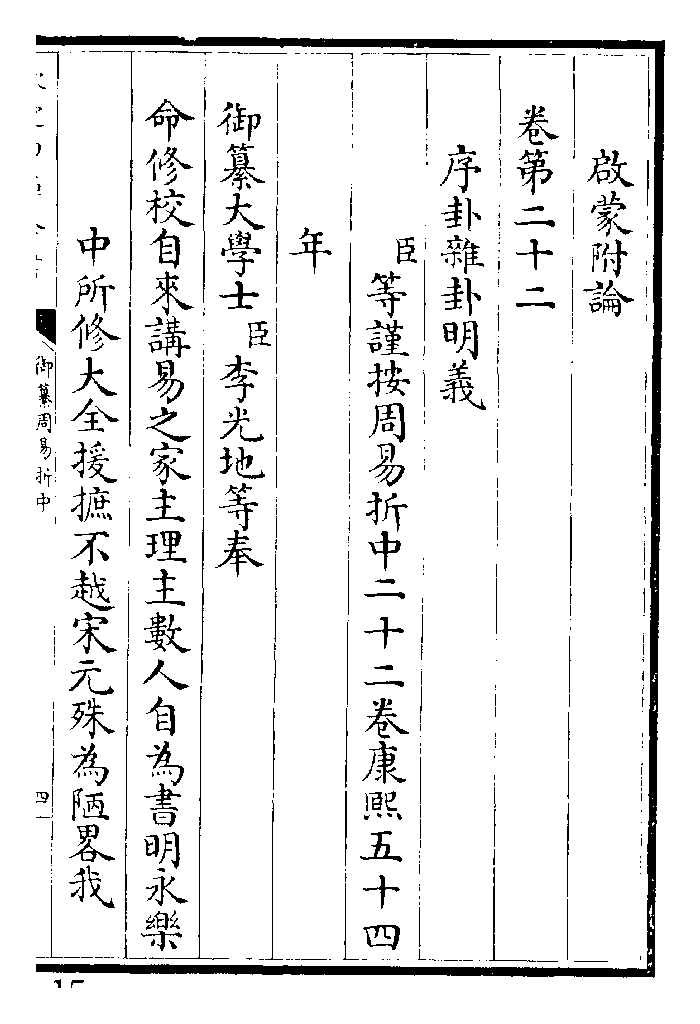 啟蒙附論
卷第二十二
序卦雜卦明義
臣等謹按周易折中二十二卷康熙五十四
年
御纂大學士臣李光地等奉
命修校自來講易之家主理主數人自為書明永樂
中所修大全援摭不越宋元殊為陋畧我
御纂周易折中
四
15